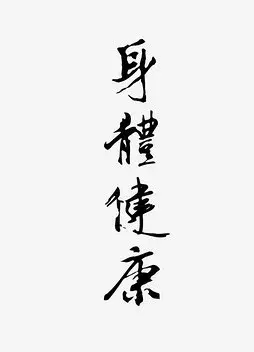 身體健康